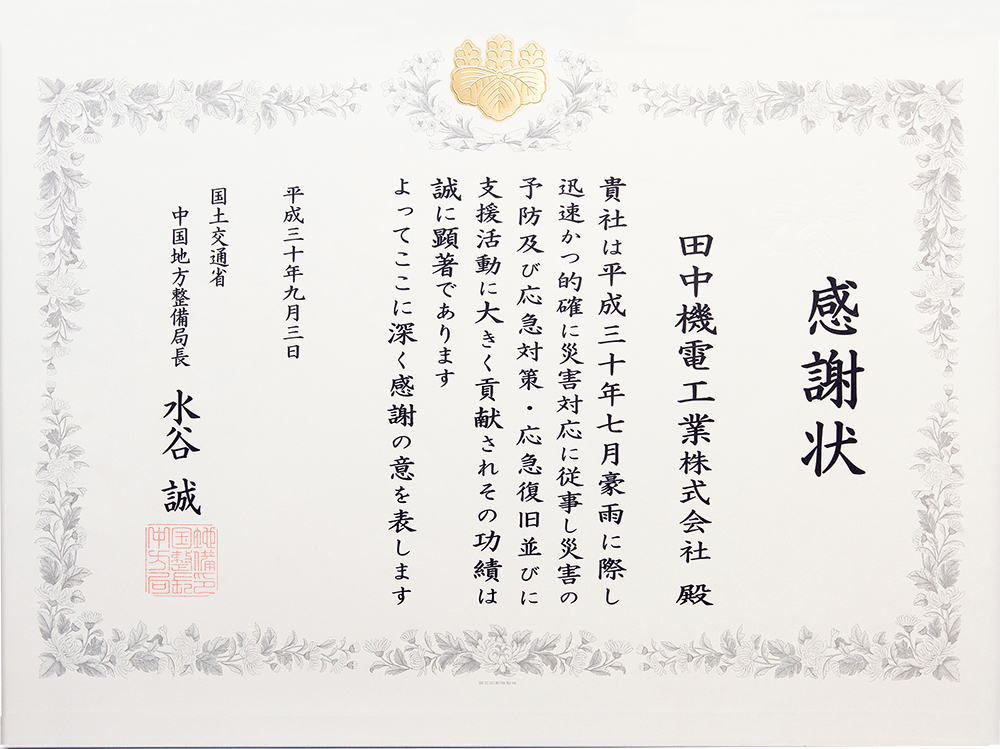 感謝状
田中機電工業株式会社 殿
貴社は平成三十年七月豪雨に際し
迅速かつ的確に災害対応に従事し災害の
予防及び応急対策・応急復旧並びに
支援活動に大きく貢献されその功績は
誠に顕著であります
よってここに深く感謝の意を表します
平成三十年九月三日
国土交通省
中国地方整備局長 水谷 誠